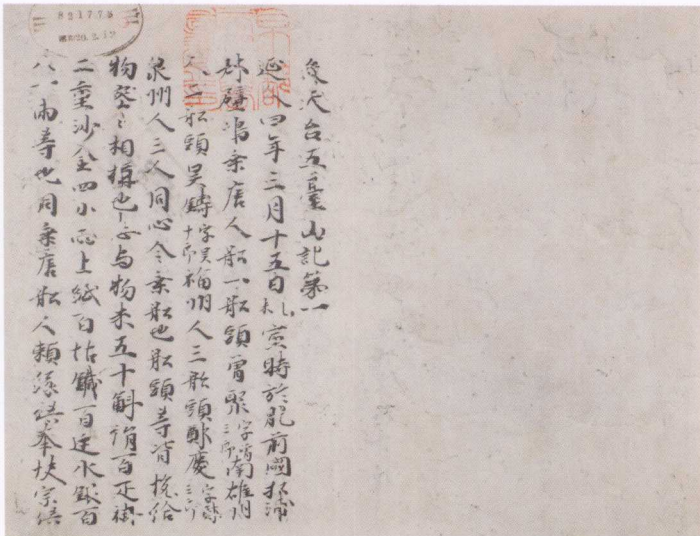 参天台五臺山記第一
延久四年三月十五日乙未寅時於肥前國松浦
郡壁嶋乗唐人舩一舩頭曾聚字曾三郎南雄州
人二舩頭吴鋳字吴十郎福州人三舩頭鄭慶字鄭三郎
泉州人三人同心令乗舩也舩頭等皆悦給
物密々相構也志与物米五十斛絹百疋褂
二重沙金四小両上紙百帖鐵百廷水銀百
八十両等也同乗唐舩人頼縁供奉快宗供